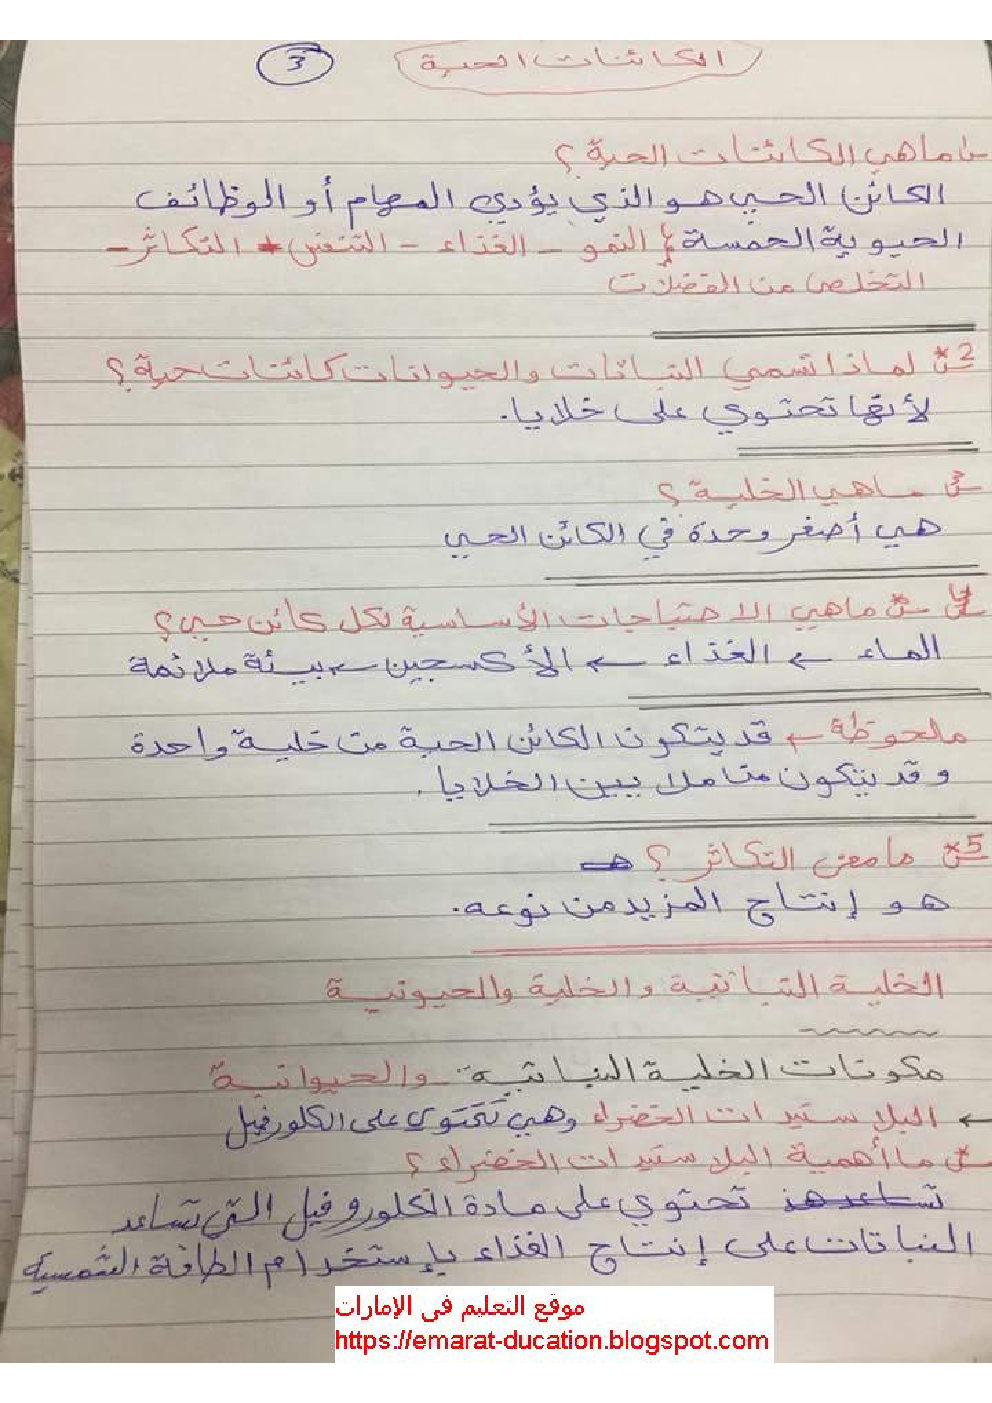 الكائنات الحية 3
س1 ماهي الكائنات الحية ؟
الكائن الحي هو الذي يؤدي المهام أو الوظائف
الحيوية الخمسة النمو - الغذاء - التنفس - التكاثر -
التخلص من الفضلات
س2* لماذا تسمي النباتات والحيوانات كائنات حية ؟
لأنها تحتوي على خلايا.
س3 ماهي الخلية ؟
هي أصغر وحدة في الكائن الحي
س4 ماهي الاحتياجات الأساسية لكل كائن حي ؟
الماء ← الغذاء ← الأكسجين ← بيئة ملائمة
ملحوظة ← قد يتكون الكائن الحية من خلية واحدة
وقد يتكون من بين الخلايا.
س5* ما معنى التكاثر ؟
هو إنتاج المزيد من نوعه.
الخلية النباتية والخلية والحيونية
مكونات الخلية النباتية والحيوانية
← البلاستيدات الخضراء وهي تحتوى على الكلورفيل
س* ما أهمية البلاستيدات الخضراء ؟
تحتوي على مادة الكلوروفيل التي تساعد
النباتات على إنتاج الغذاء بإستخدام الطاقة الشمسية
موقع التعليم فى الإمارات
https://emarat-ducation.blogspot.com